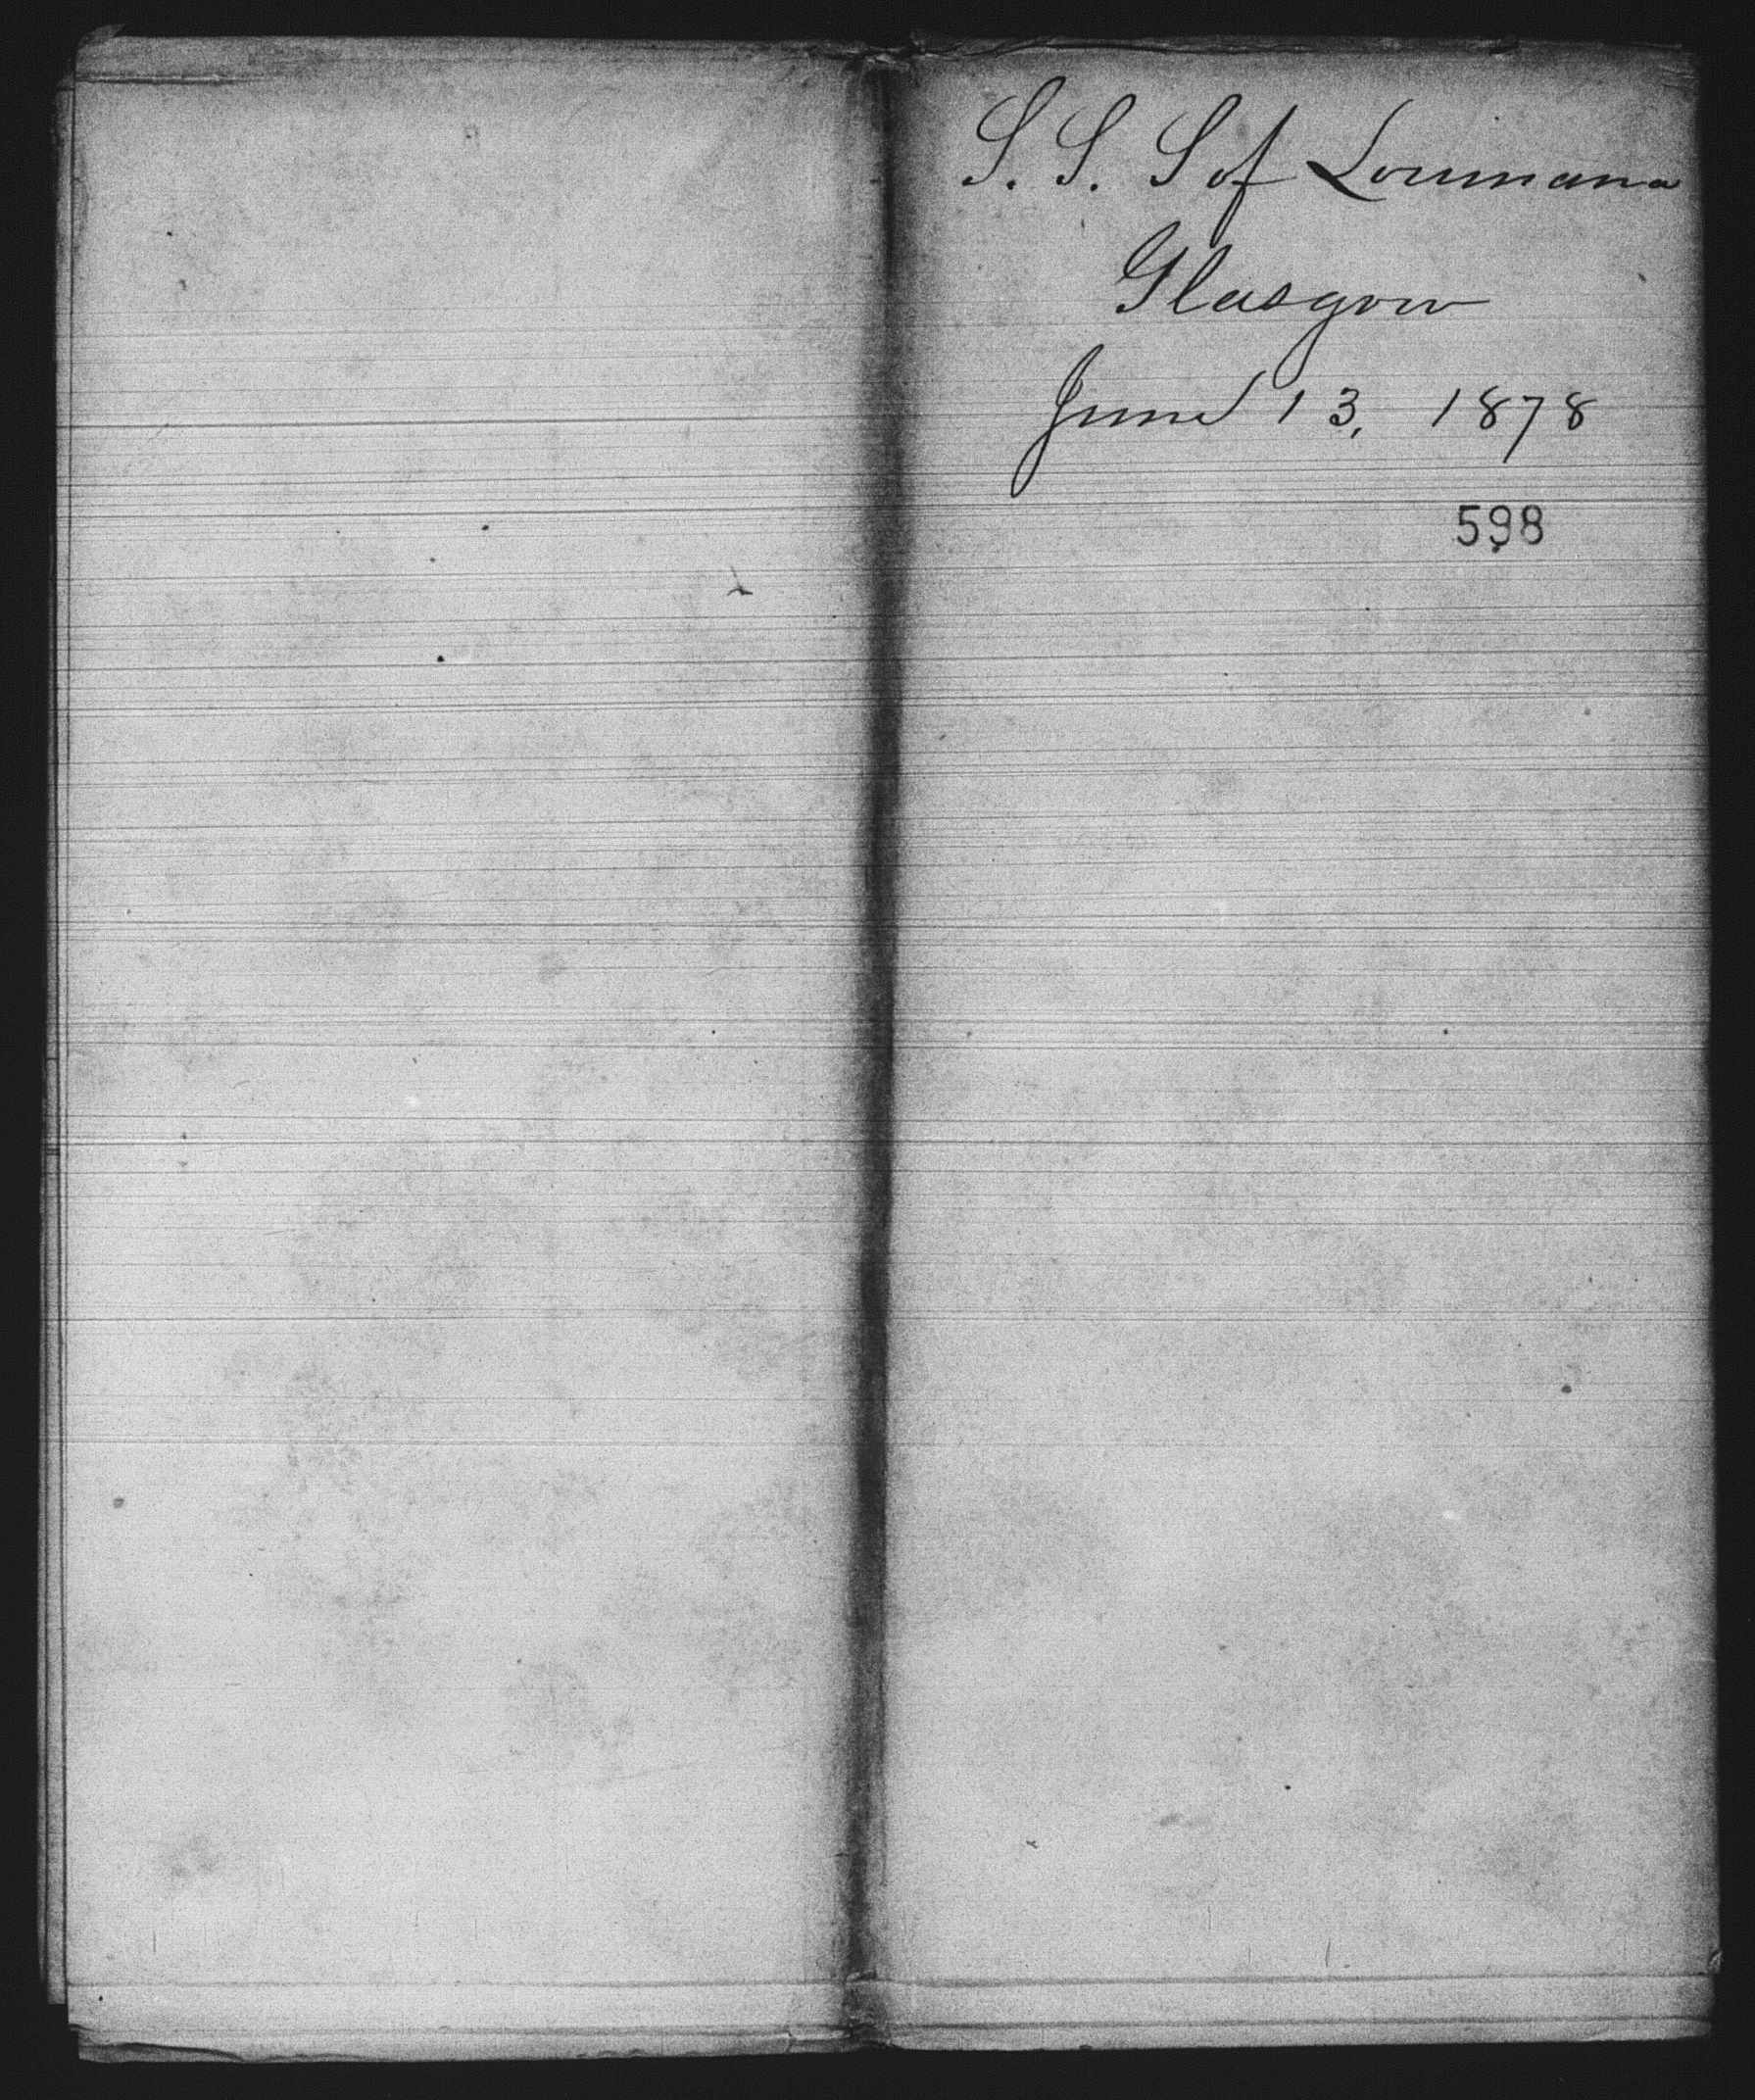 S. S. S of Louisiana
Glasgow
June 13, 1878
598